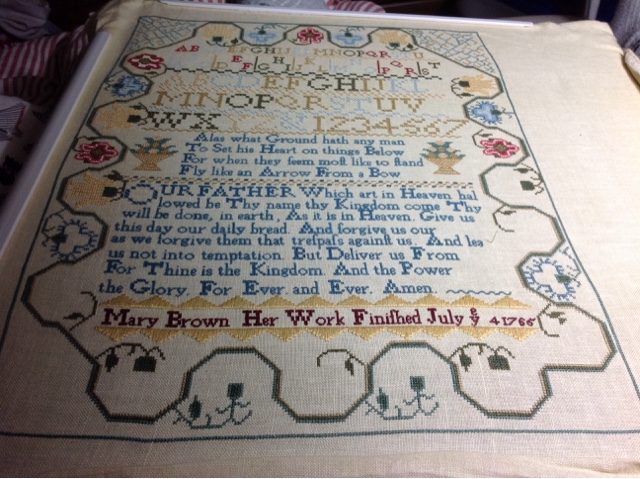 AB EFGHIJ MNOPQR U
EFGHI PQRST
ABCD EFGHIJKL
MNOPQRSTUV
WX 1234567
Alas what Ground hath any man
To Set his Heart on things Below
For when they ſeem moſt like to ſtand
Fly like an Arrow From a Bow
OUR FATHER Which art in Heaven hal
lowed be Thy name thy Kingdom come Thy
will be done, in earth, As it is in Heaven. Give us
this day our daily bread. And forgive us our
as we forgive them that treſpaſs againſt us, And lea
us not into temptation. But Deliver us From
For Thine is the Kingdom, And the Power
the Glory, For Ever, and Ever, Amen.
Mary Brown Her Work Finiſhed July yͤ 4 1766